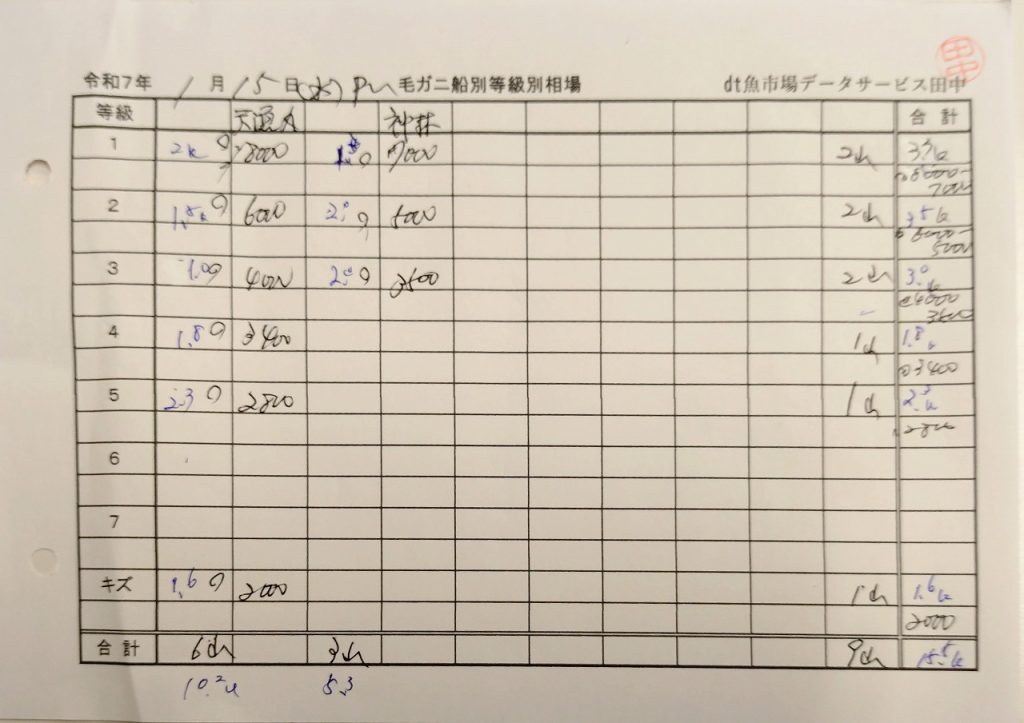 令和7年 1月15日(水) PM 毛ガニ船別等級別相場 dt魚市場データサービス田中
田中
等級 天通A 神林 合計
1 2k 8000 7000 2 3.3k
8000- 7000
2 1.5k 6000 2.0 5000 2 3.5k
6000- 5000
3 1.0 4000 2.0 3500 2 3.0k
4000 3500
4 1.8 3400 1 1.8k
3400
5 2.3 2800 1 2.3k
2800
6
7
キズ 1.6 2000 1 1.6k
2000
合計 6 3 9 15.5k
10.2k 5.3